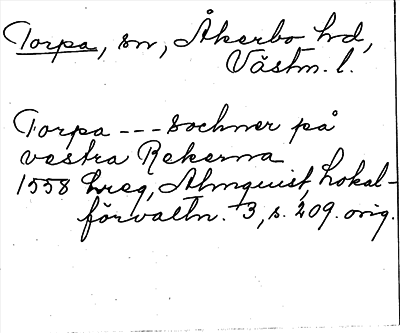 Torpa, sn, Åkerbo hd,
Västm. l.
Torpa --- sochner på
vestra Rekerna
1558 hreg, Almquist, Lokal-
förvaltn. 3, s. 209. orig.